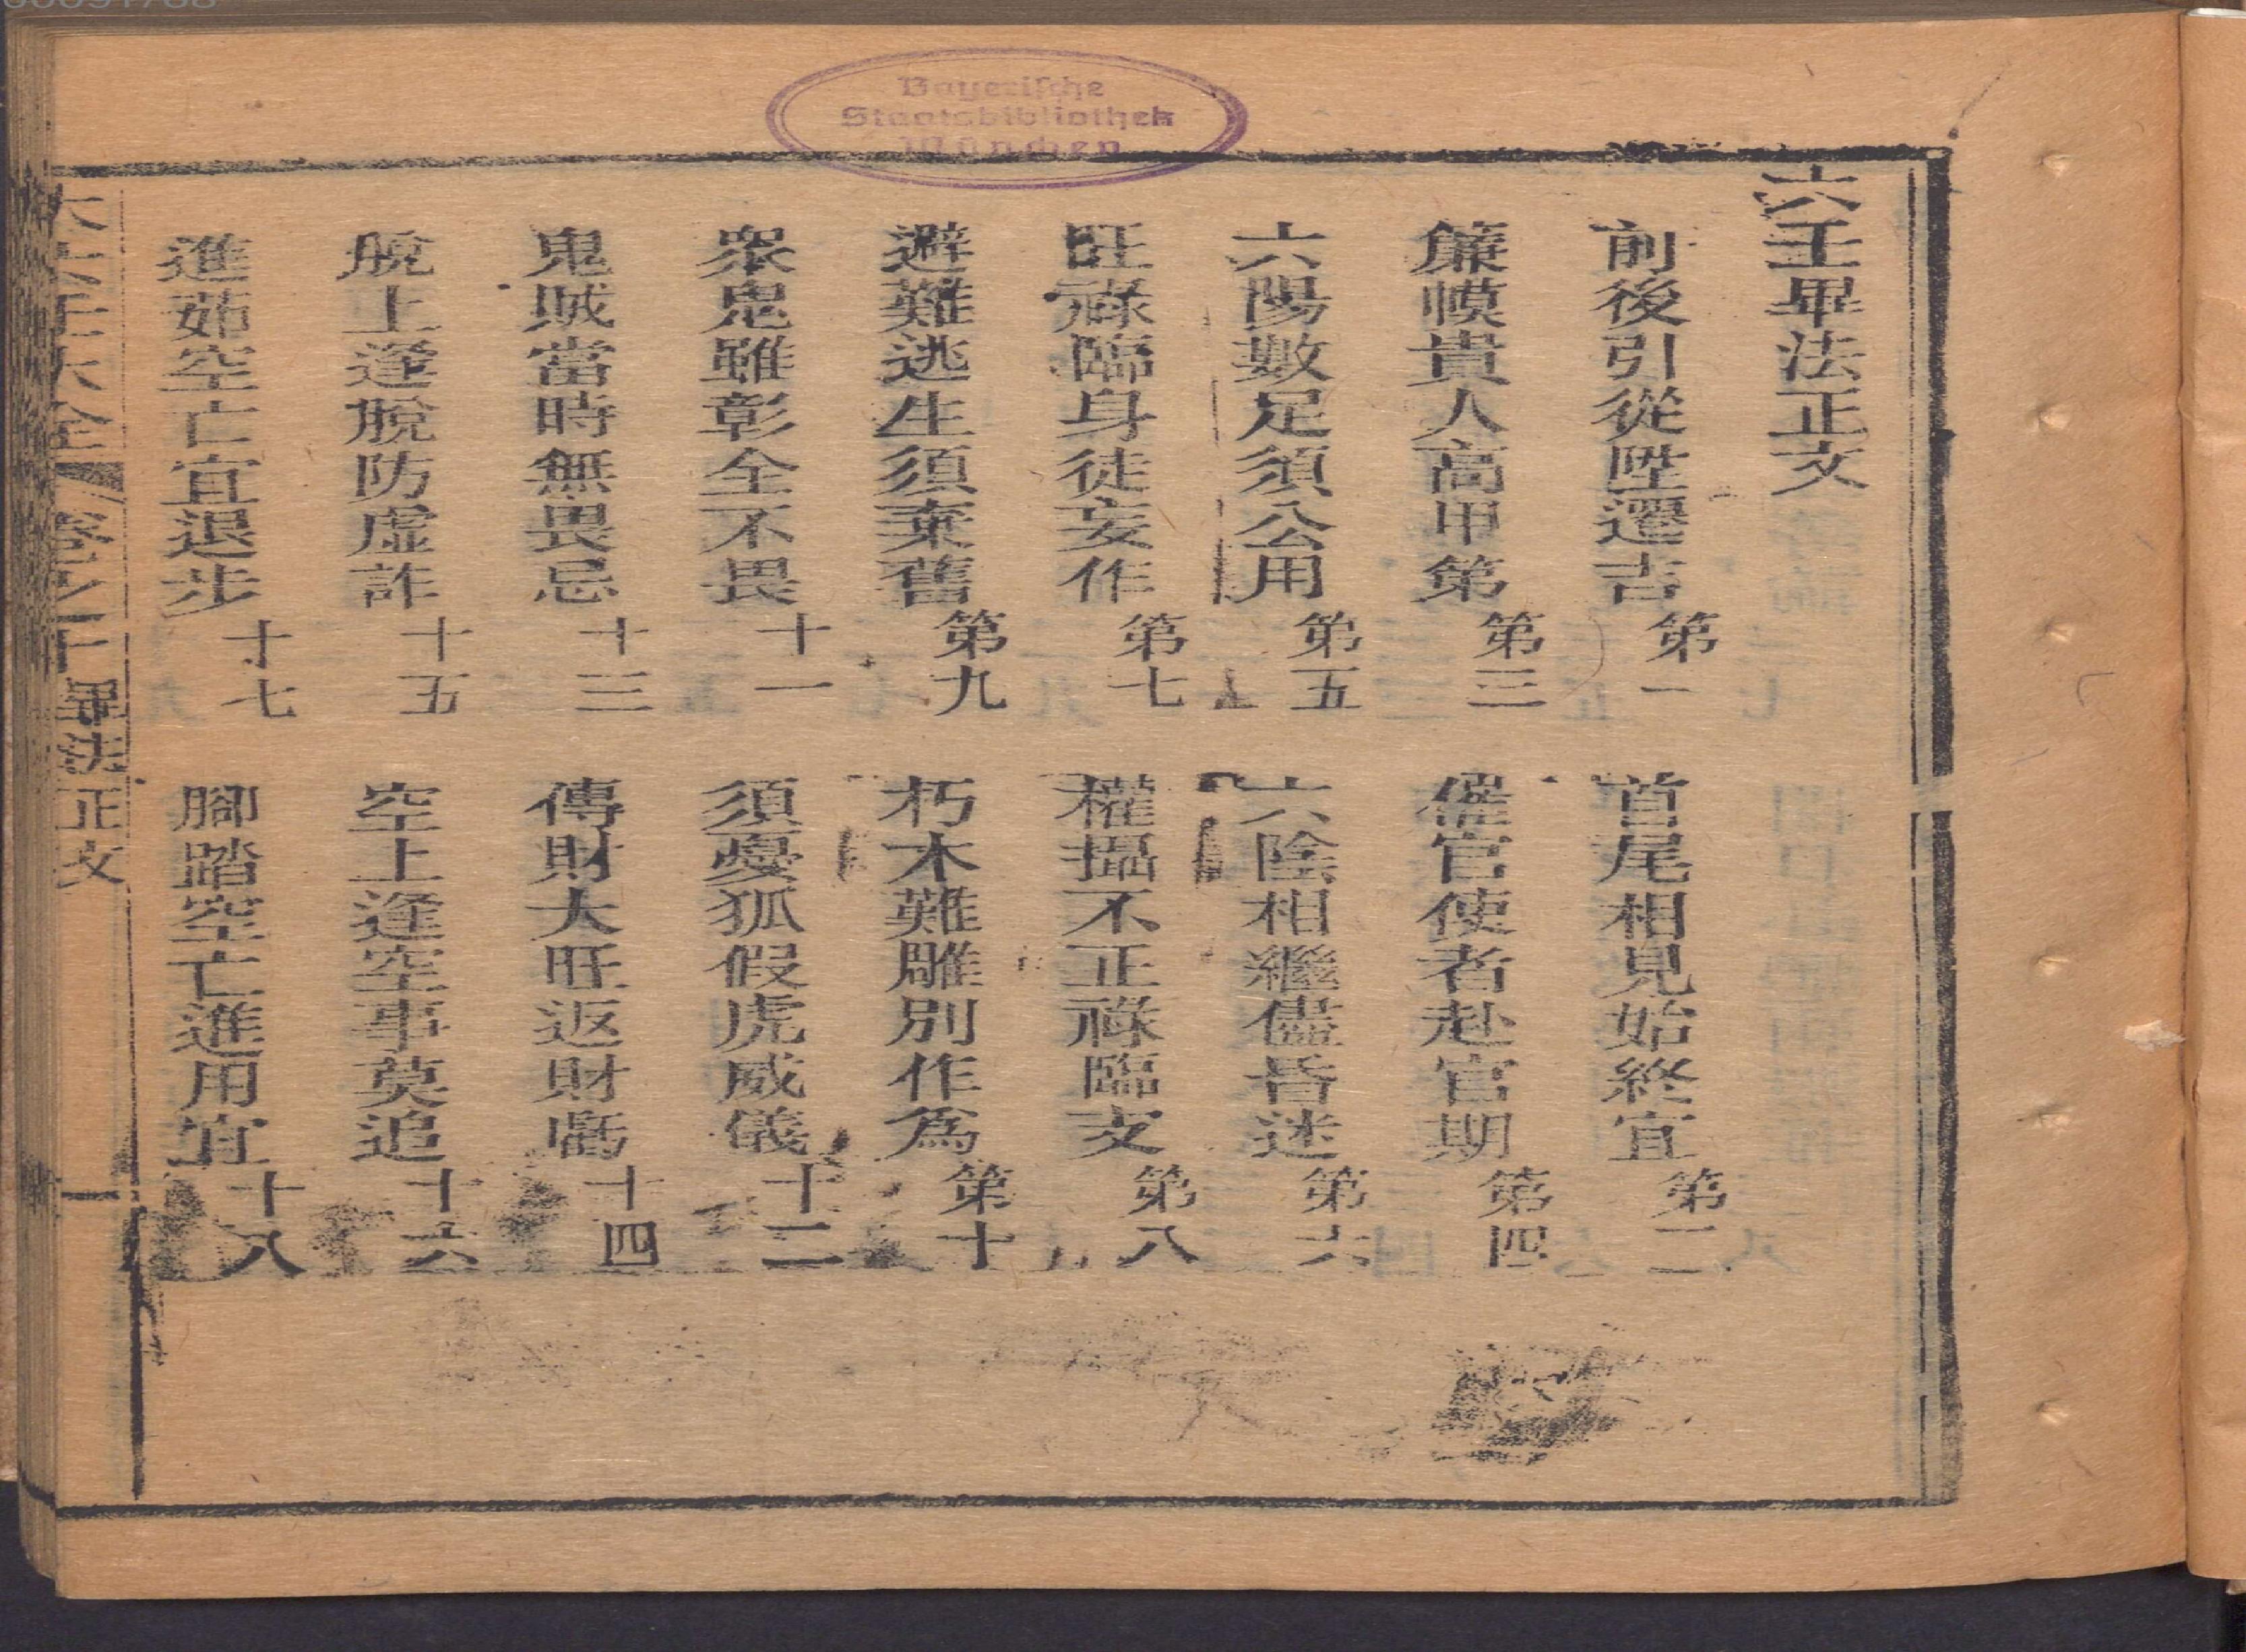 六壬畢法正文
前後引從陞遷吉 第一 首尾相見始終宜 第二
簾幙貴人高甲第 第三 催官使者赴官期 第四
六陽數足須公用 第五 六陰相繼儘昏迷 第六
旺祿臨身徒妄作 第七 權攝不正祿臨支 第八
避難逃生須棄舊 第九 朽木難雕別作為 第十
眾鬼雖彰全不畏 十一 須憂狐假虎威儀 十二
鬼賊當時無畏忌 十三 傳財太旺返財虧 十四
脫上逢脫防虛詐 十五 空上逢空事莫追 十六
進茹空亡宜退步 十七 腳踏空亡進用宜 十八
大六壬大全 卷之十 畢法正文 一
Bayerische
Staatsbibliothek
München